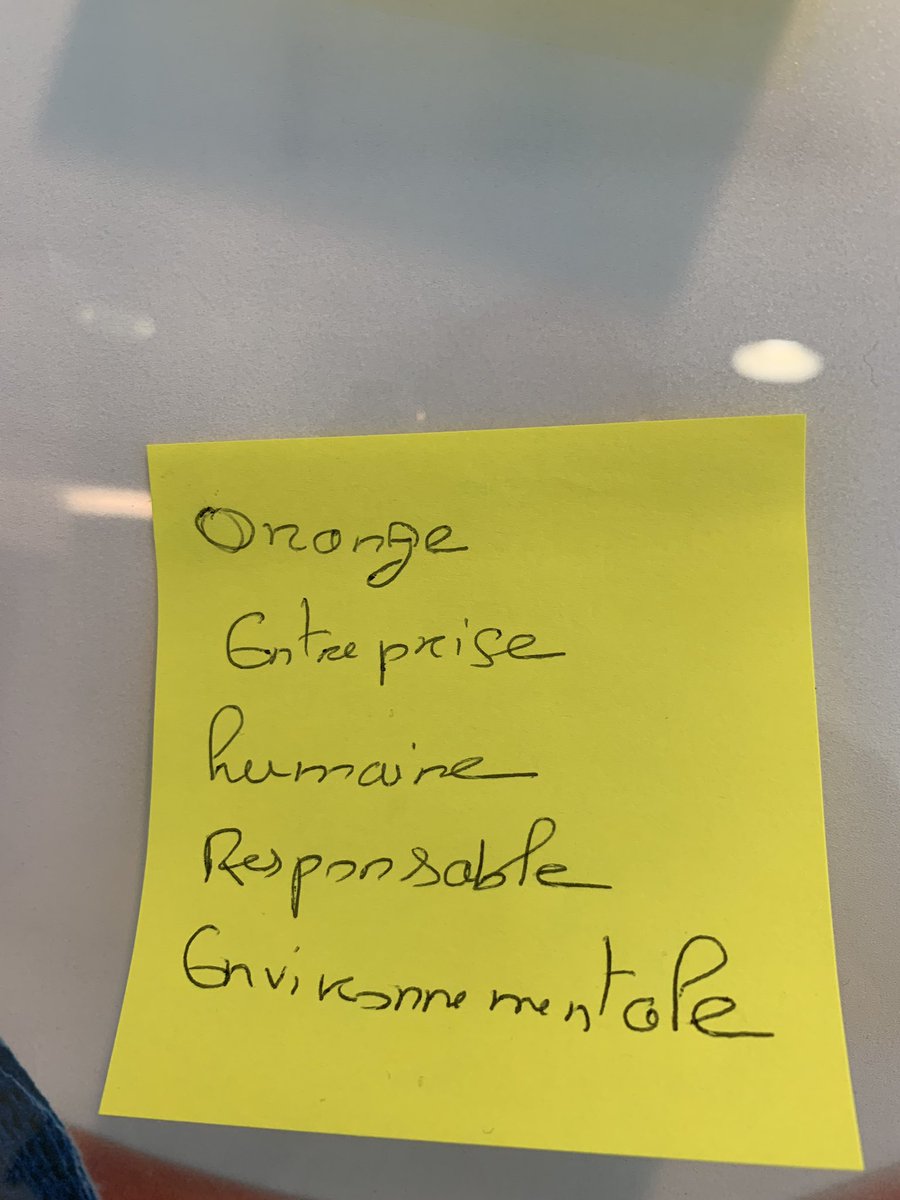 Orange
Entreprise
humaine
Responsable
Environnementale